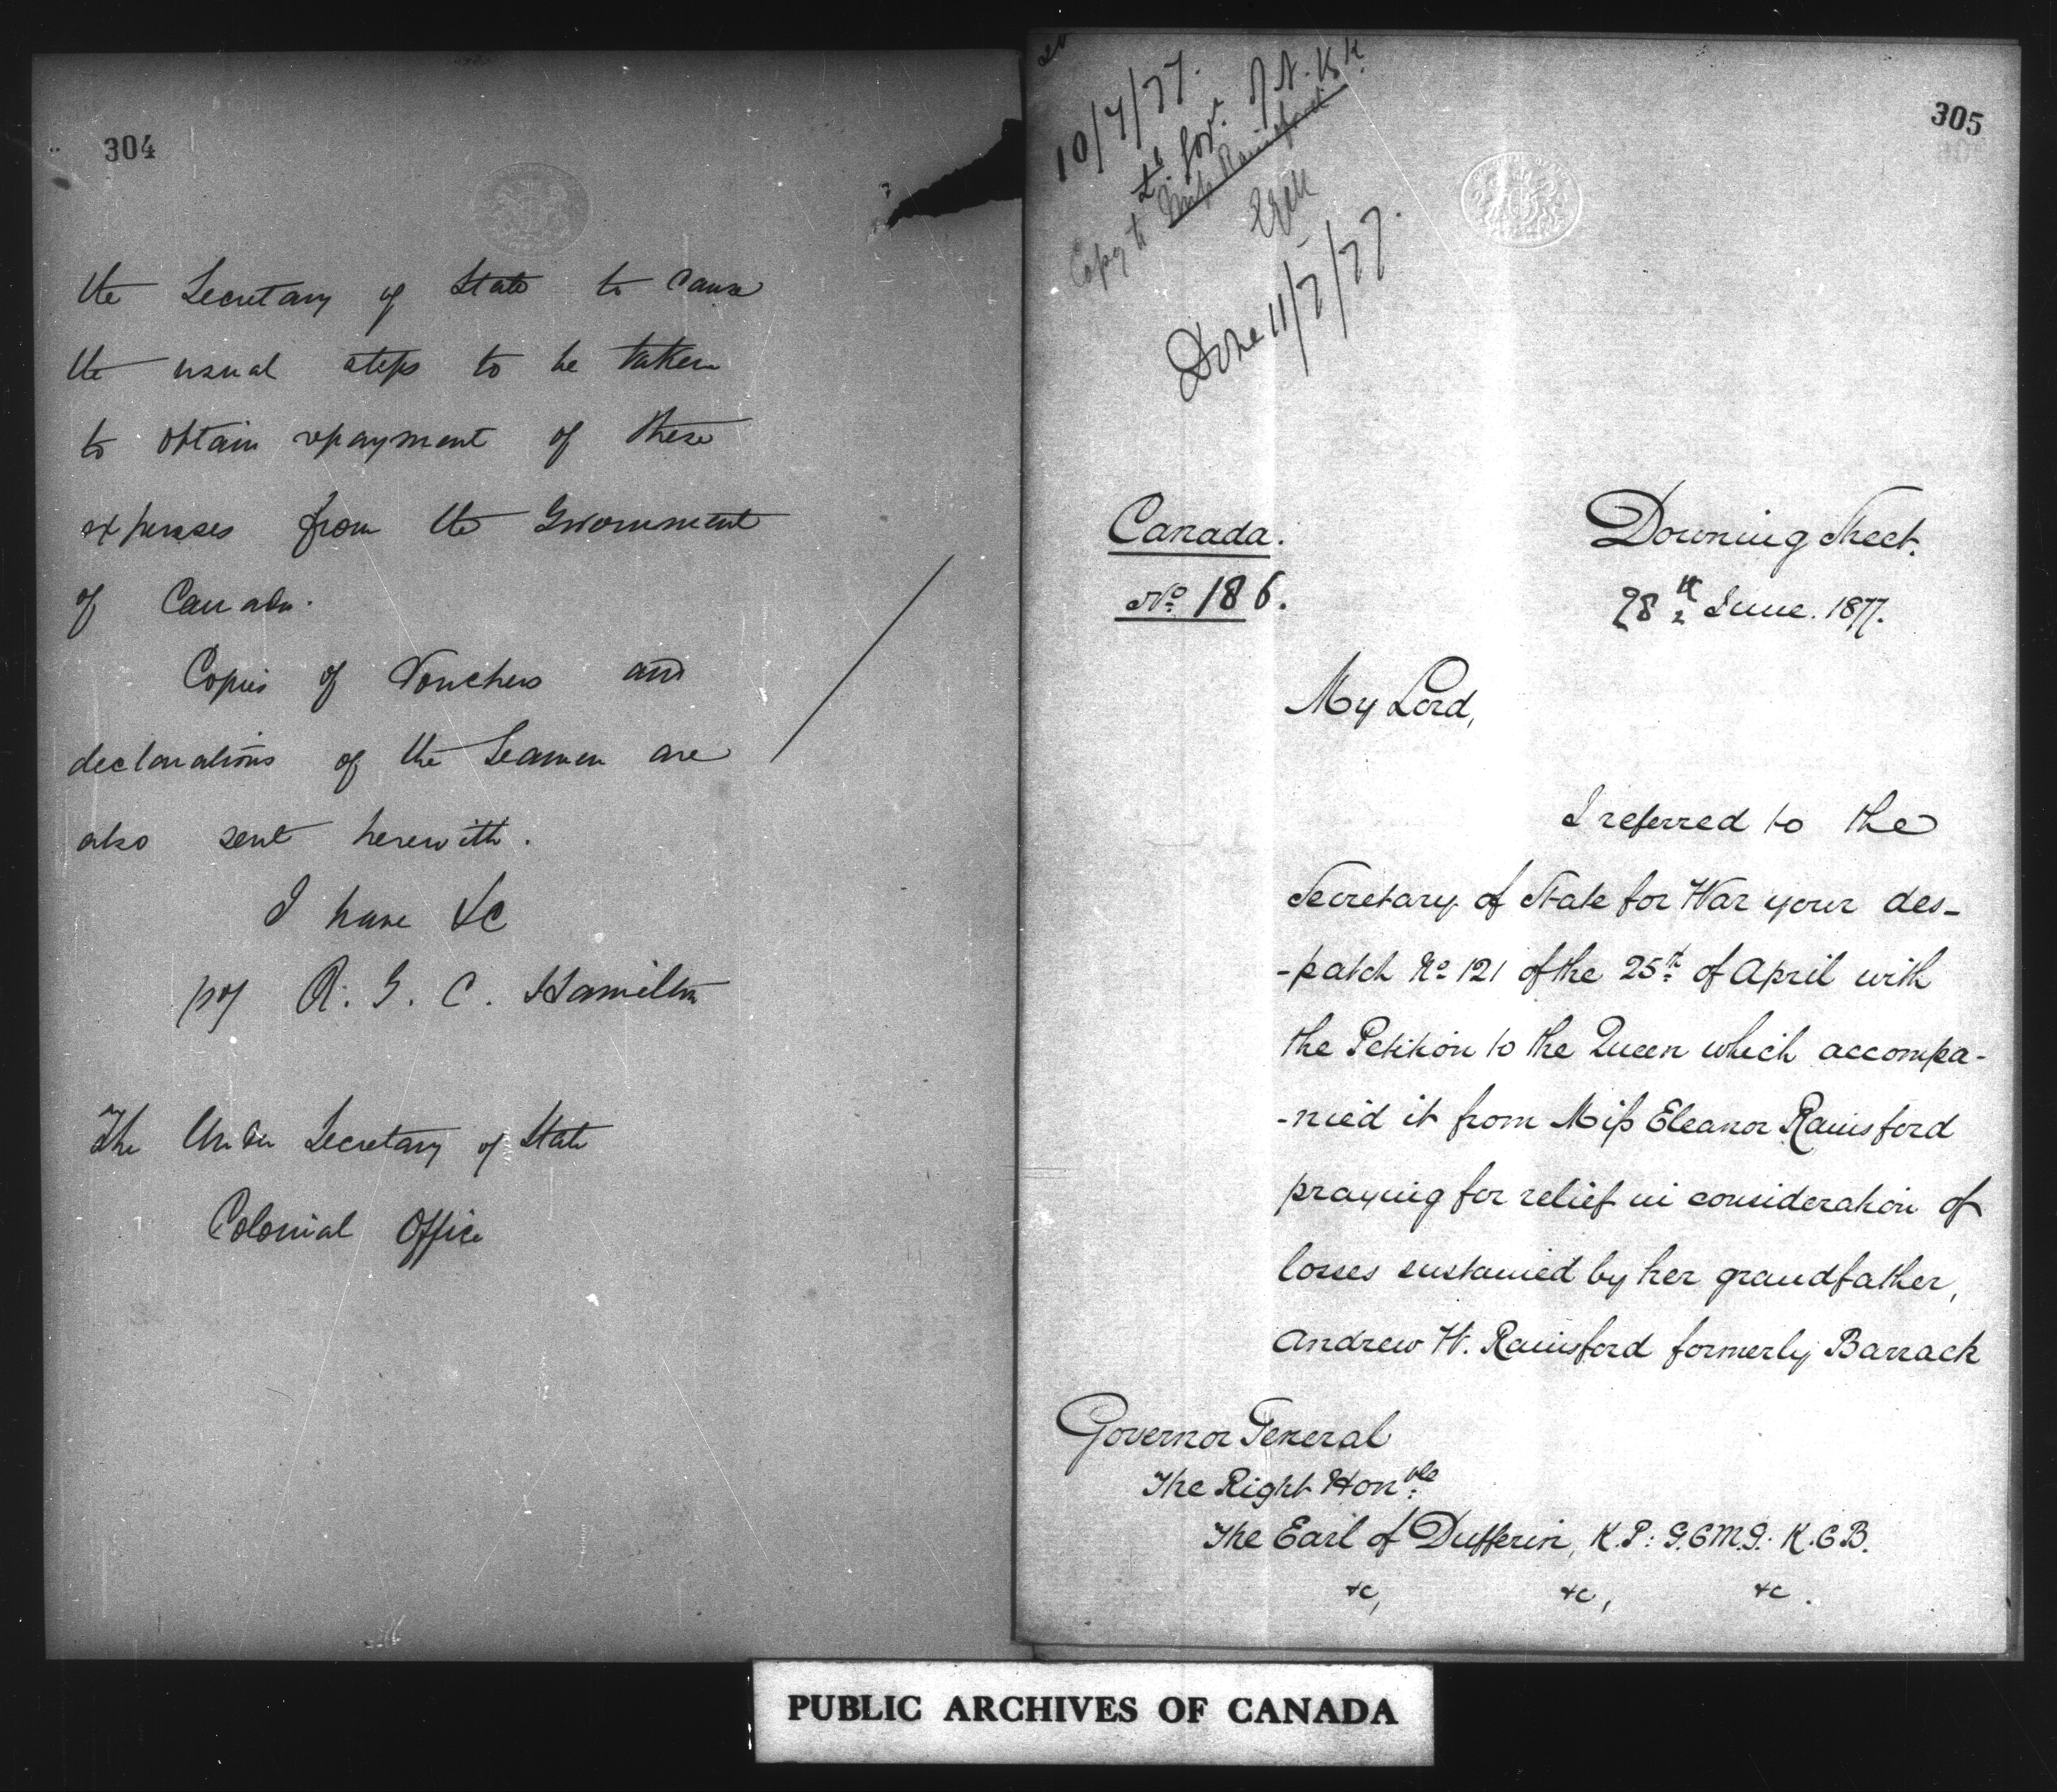 304
the Secretary of State to cause
the usual steps to be taken
to obtain repayment of these
expenses from the Government
of Canada.
Copies of Vouchers and
declarations of the Seamen are
also sent herewith.
I have &c
R. G. C. Hamilton
The Under Secretary of State
Colonial Office
305
10/7/77.
Lt. Gov. of N. Bk
Copy to Miss Rainsford
Done 11/7/77.
Canada.
No 186.
Downing Street.
28th June. 1877.
My Lord,
I referred to the
Secretary of State for War your des-
-patch No 121 of the 25th of April with
the Petition to the Queen which accompa-
-nied it from Miss Eleanor Rainsford
praying for relief in consideration of
losses sustained by her grandfather,
Andrew W. Rainsford formerly Barrack
Governor General
The Right Honble
The Earl of Dufferin, K.P: G.C.M.G. K.C.B.
&c, &c, &c.
PUBLIC ARCHIVES OF CANADA